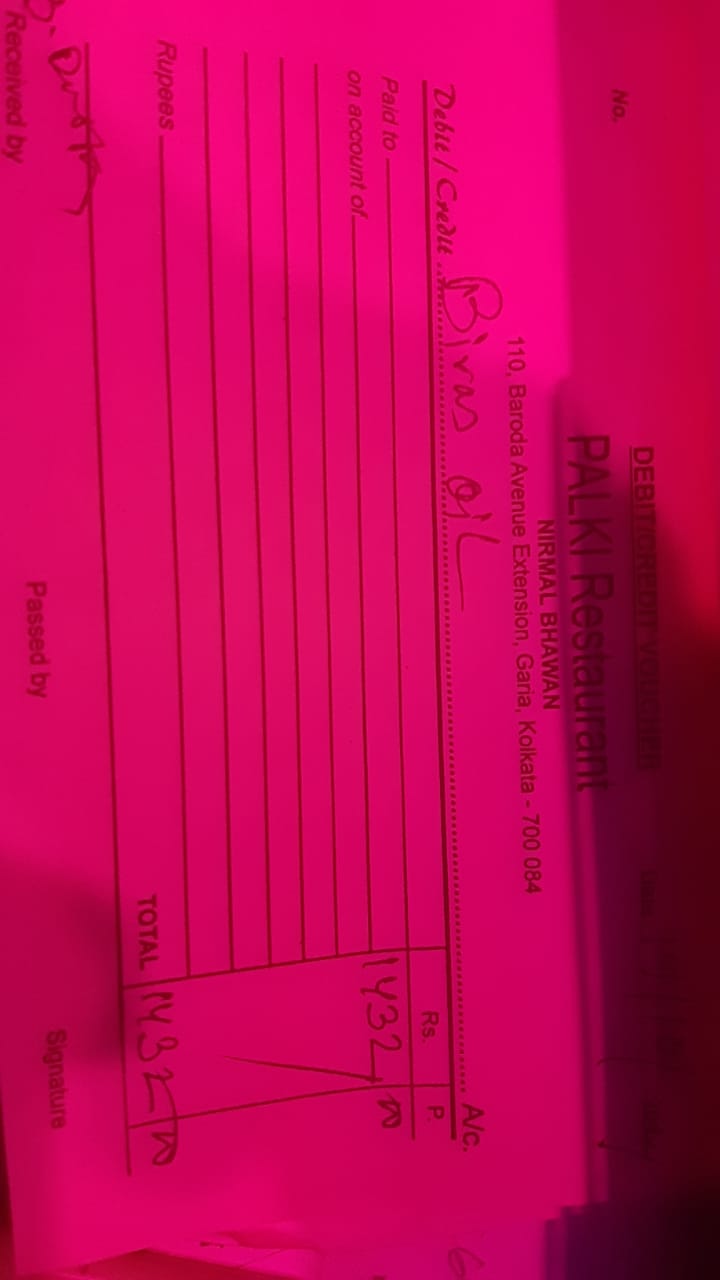 DEBIT/CREDIT VOUCHER
No.
PALKI Restaurant
NIRMAL BHAWAN
110, Baroda Avenue Extension, Garia, Kolkata - 700 084
Debit / Credit Biras oil A/c.
Rs. P.
Paid to 1432 00
on account of
Rupees TOTAL 1432 00
Received by Passed by Signature